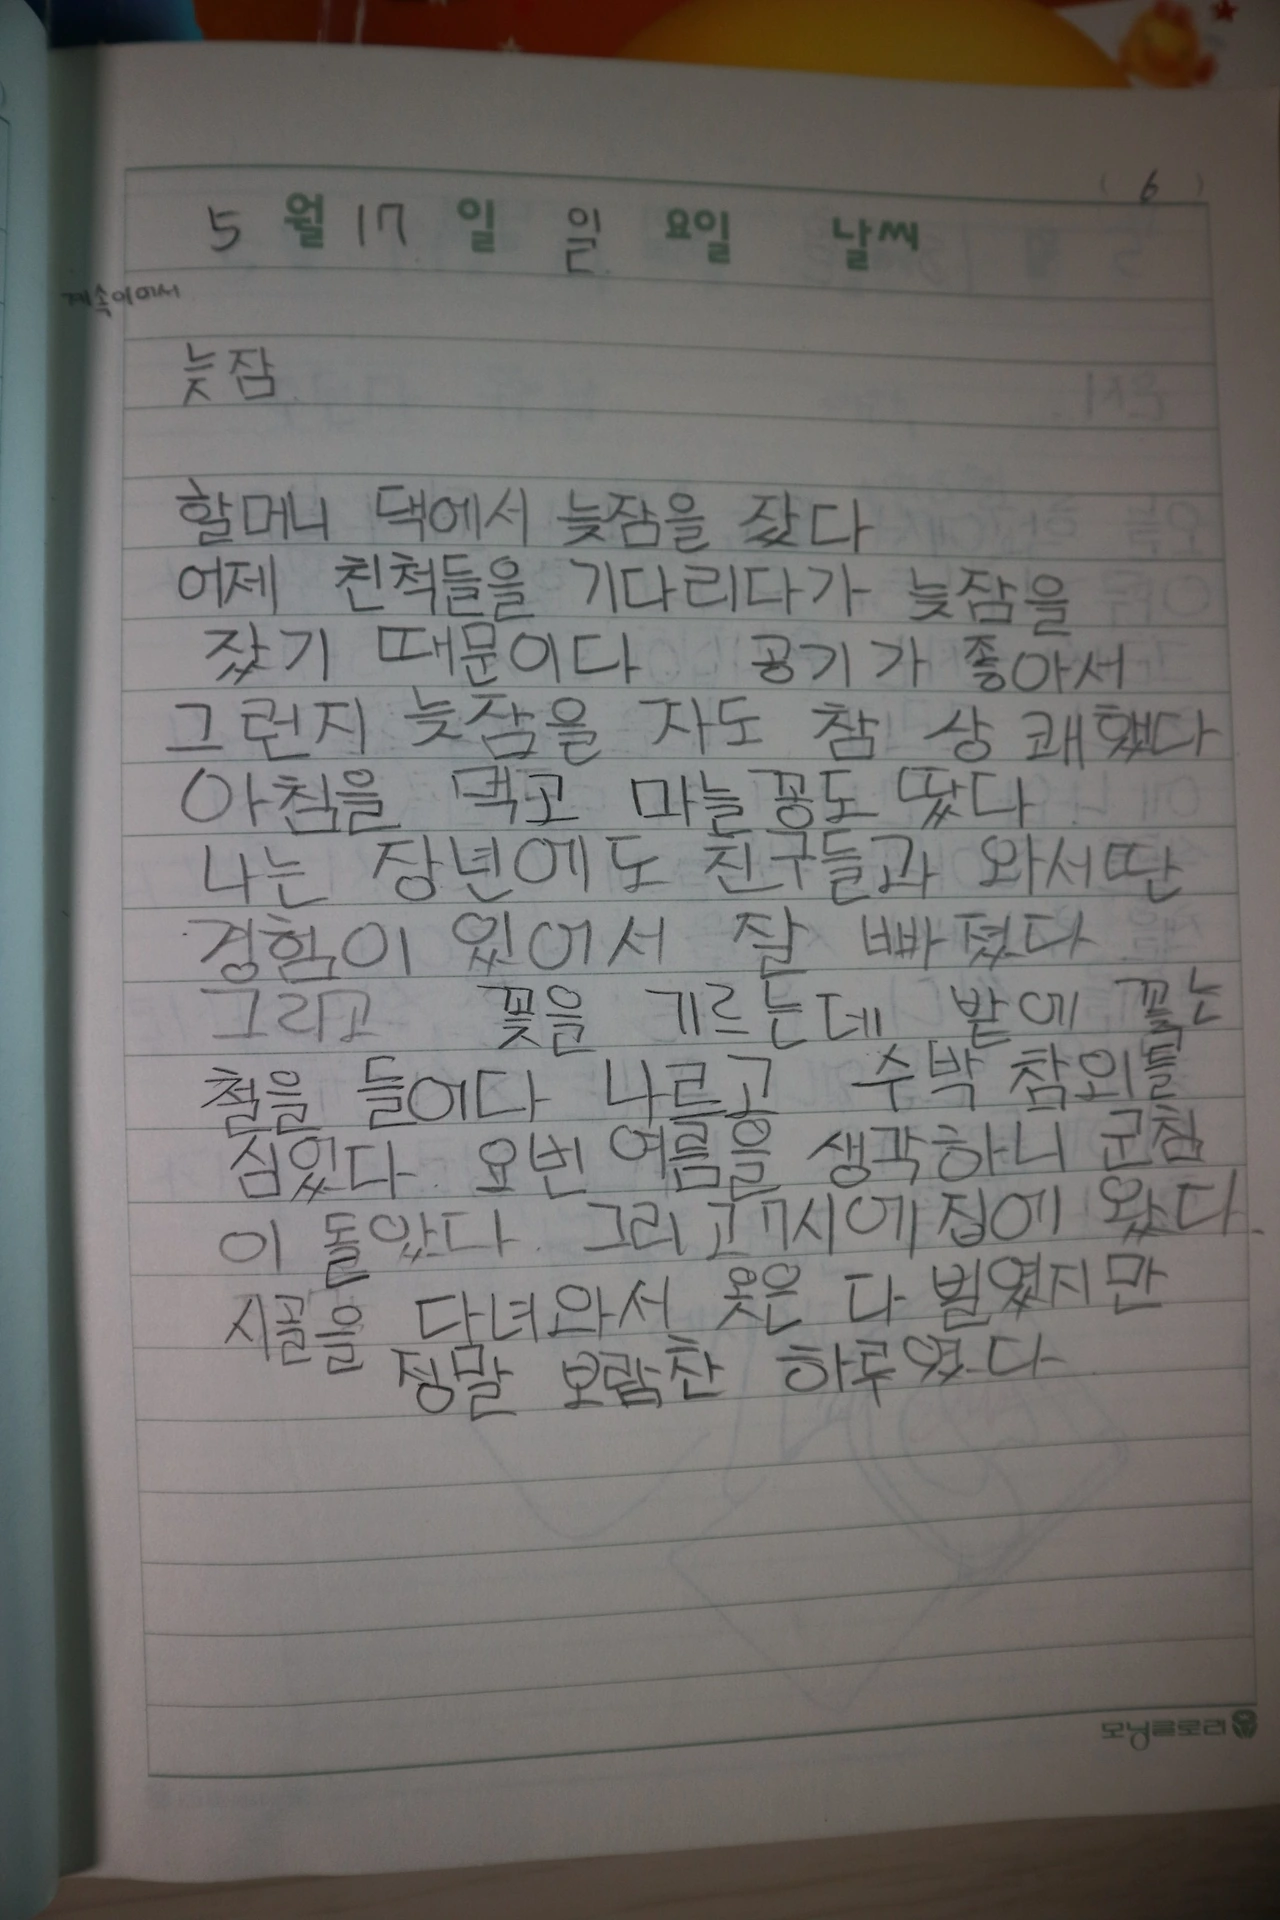 ( 6 )
5 월 17 일 일 요일 날씨
계속이어서
늦잠
할머니 댁에서 늦잠을 잤다
어제 친척들을 기다리다가 늦잠을
잤기 때문이다 공기가 좋아서
그런지 늦잠을 자도 참 상쾌했다
아침을 먹고 마늘쫑도 땄다
나는 장년에도 친구들과 와서 딴
경험이 있어서 잘 빠졌다
그리고 꽃을 기르는데 밭에 꽂는
철을 들어다 나르고 수박 참외를
심었다 요번 여름을 생각하니 군침
이 돌았다. 그리고 7시에 집에 왔다.
시골을 다녀와서 옷은 다 버렸지만
정말 보람찬 하루였다
모닝글로리